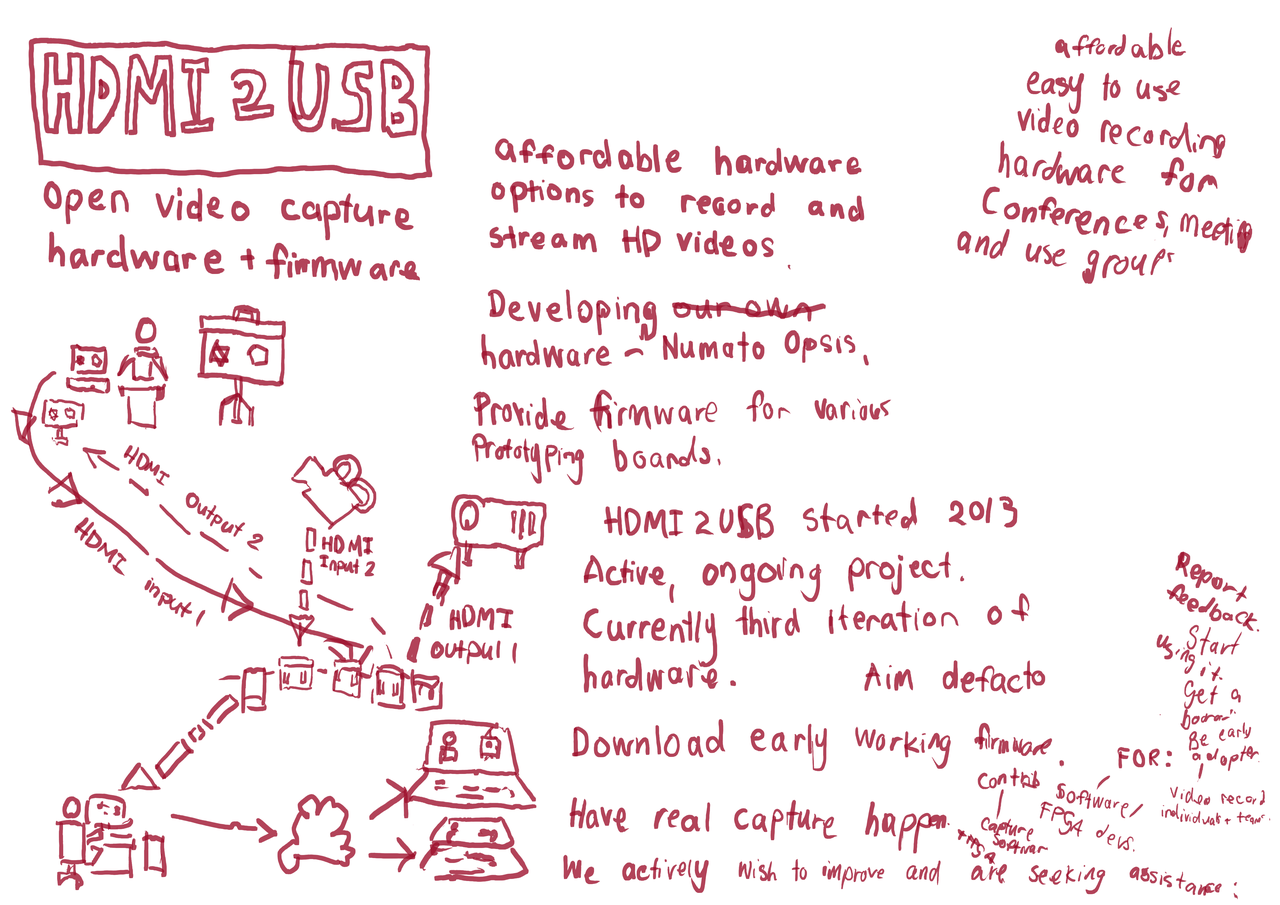 HDMI 2 USB
Open video capture
hardware + firmware
affordable hardware
options to record and
stream HD videos.
Developing our own
hardware - Numato Opsis,
Provide firmware for various
Prototyping boards.
affordable
easy to use
video recording
hardware for
Conferences, meeting
and use groups
HDMI
Output 2
HDMI
input 1
HDMI
Input 2
HDMI
Output 1
HDMI 2 USB started 2013
Active, ongoing project.
Currently third iteration of
hardware.
Aim defacto
Download early working firmware.
Have real capture happen.
We actively wish to improve and are seeking assistance:
Report
feedback.
Start
using it.
Get a
board
Be early
adopter
FOR:
Video record
individual + team
Contrib
Software/
FPGA devs.
Capture
Softwar